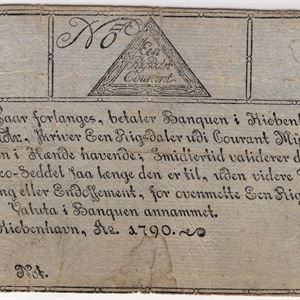 No
Een
Rigsdaler
Courant
Naar forlanges, betaler Banquen i Kiøbenh
skriver Een Rigsdaler udi Courant Mi
n i Hænde havende; Imidlertiid validerer d
co-Seddel saa længe den er til, uden videre
ng eller Endossement, for ovenmelte Een Rig
Valuta i Banquen annammet.
Kiøbenhavn, Ao. 1790.